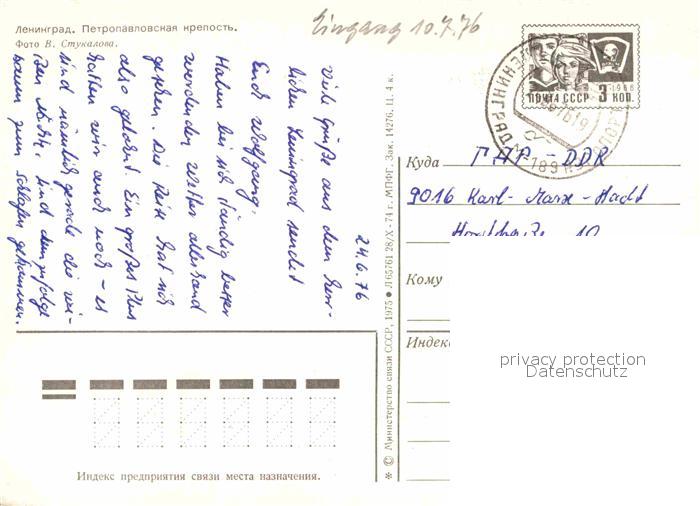 Ленинград. Петропавловская крепость.
Фото В. Стукалова.
Eingang 10.7.76
24.6.76
Viele Grüße aus dem herr-
lichen Leningrad sendet
Euch Wolfgang.
Haben bei sich ständig besser
werdenden Wetter allerhand
gesehen. Die Reise hat sich
also gelohnt. Ein großes Plus
hatten wir auch noch – es
sind nämlich gerade die wei-
ßen Nächte, sind demzufolge
kaum zum Schlafen gekommen.
ПОЧТА СССР 3 КОП.
Куда ГДР - DDR
9016 Karl-Marx-Stadt
10
Кому
Индекс
privacy protection
Datenschutz
* © Министерство связи СССР, 1975 • Л 65761 28/X - 74 г. МПФГ. Зак. 14276. Ц. 4 к.
Индекс предприятия связи места назначения.